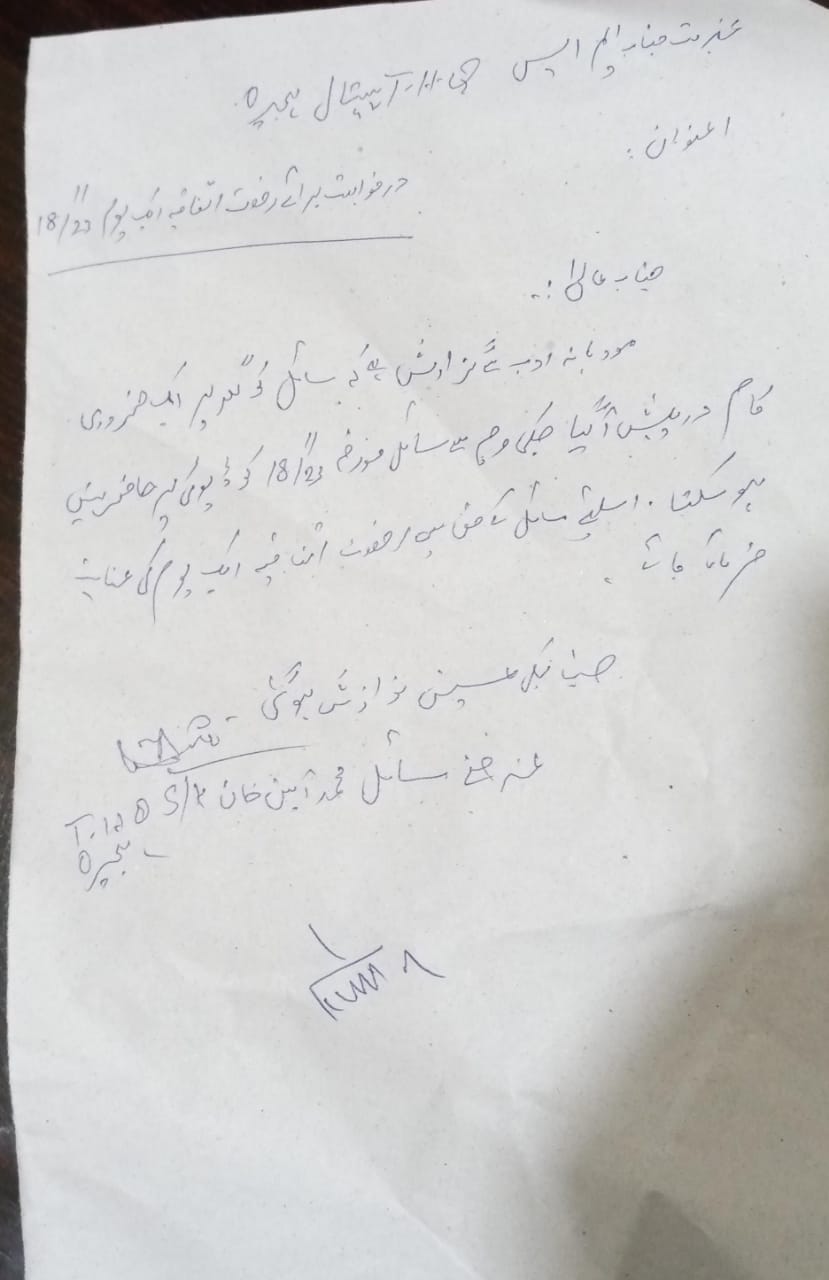 بخدمت جناب ایم ایس T.H.Q ہسپتال ہجیرہ
عنوان:
درخواست برائے رخصت اتفاقیہ ایک یوم 18/11/23
جناب عالی!:
مودبانہ ادب سے گزارش ہے کہ سائل کو گھر پر ایک ضروری
کام درپیش آگیا جسکی وجہ سے سائل مورخہ 18/11/23 کو ڈیوٹی پر حاضر نہیں
ہو سکتا . اسلئے سائل کے حق میں رخصت اتفاقیہ ایک یوم کی عنایت
فرمائی جائے .
عین نوازش ہوگی -
عرضے سائل محمد امین خان S/K T.H.Q
ہجیرہ